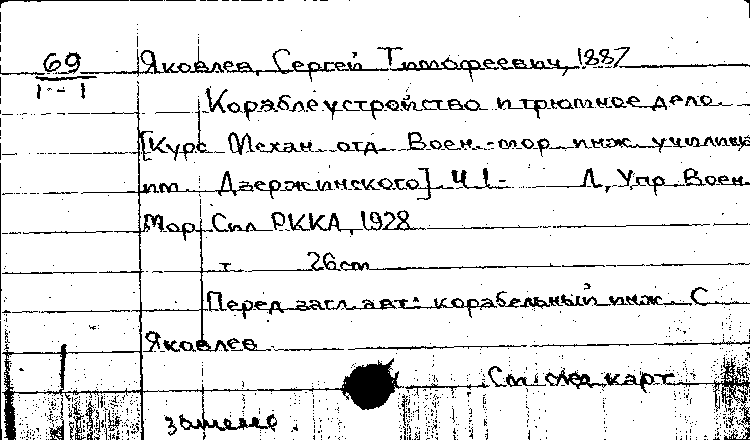 69 Яковлев, Сергей Тимофеевич, 1887
1 - 1
Кораблеустройство и трюмное дело.
[Курс Механ. отд. Воен.-мор. инж. училища
им. Дзержинского]. Ч 1- Л, Упр. Воен.
Мор. Сил РККА, 1928
т. 26cm
Перед загл. авт.: корабельный инж. С.
Яковлев.
См. след. карт.